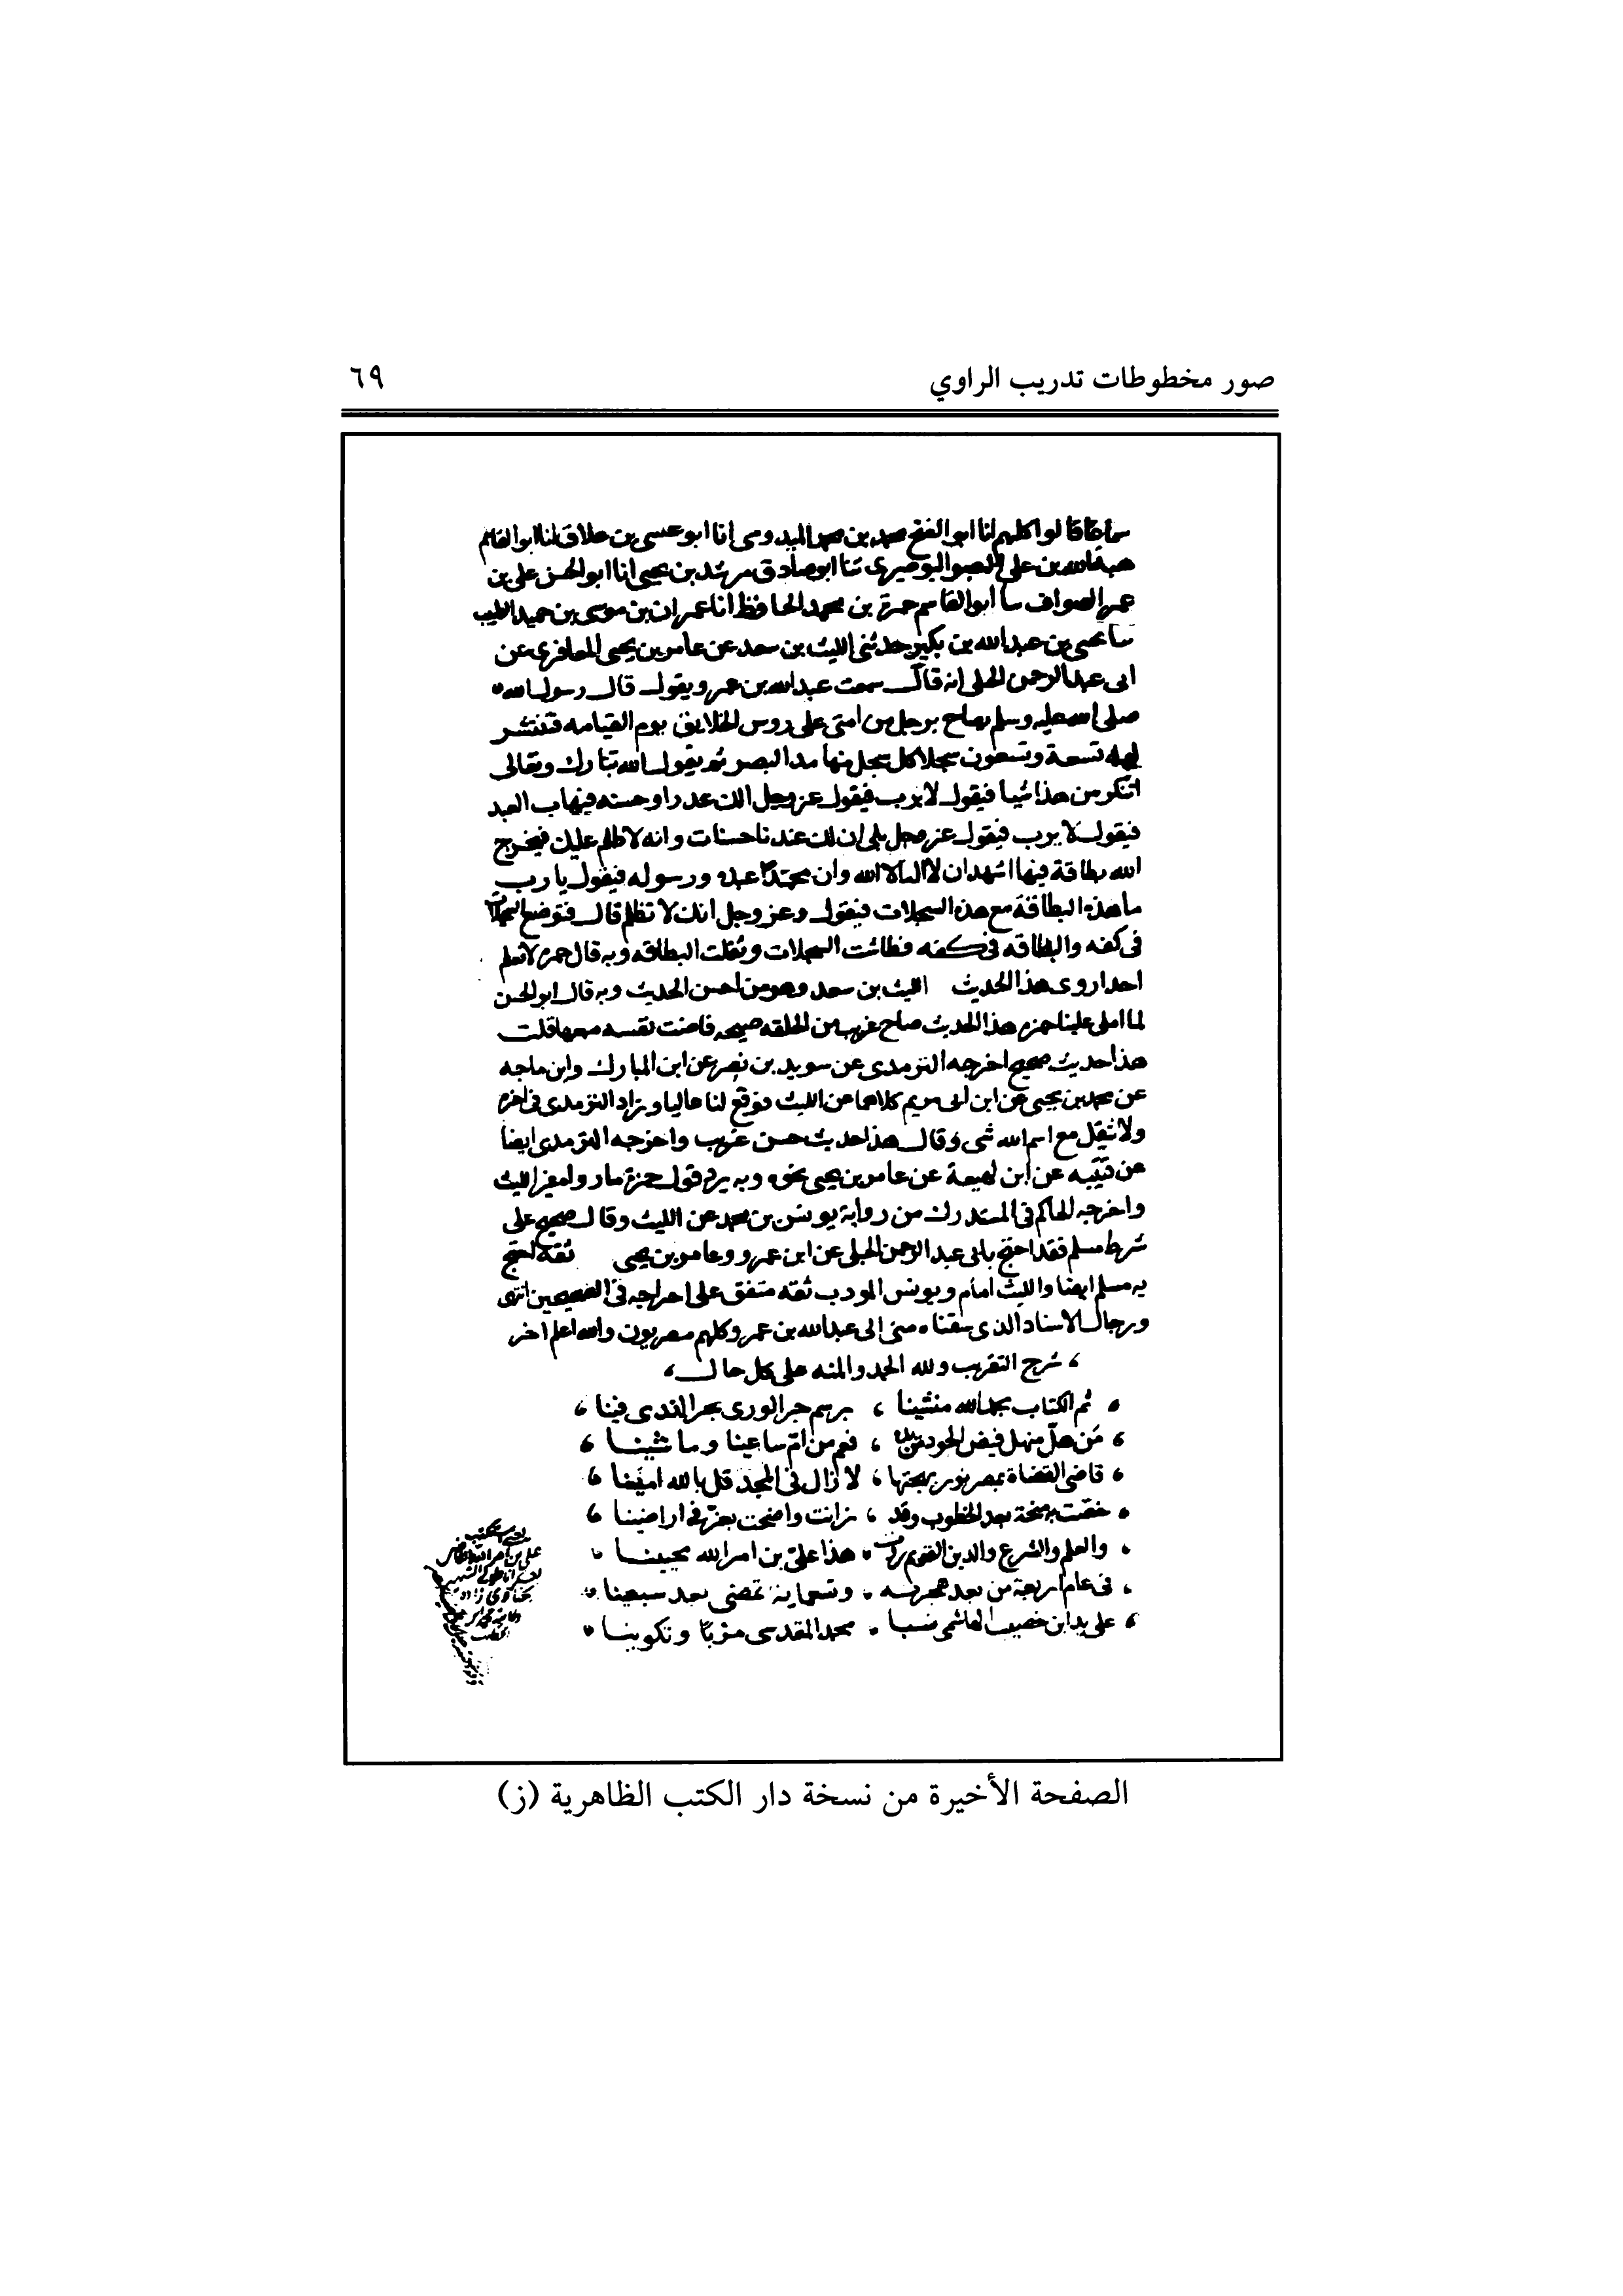 صور مخطوطات تدريب الراوي
٦٩
سماعا قالوا كلهم انا ابو الفتح محمد بن محمد الميدومى انا ابو عيسى بن علاق انا ابو القاسم
هبة الله بن على البوصيرى ثنا ابو صادق مرشد بن يحيى انا ابو الحسن على بن
عمر الصواف سا ابو القاسم حمزة بن محمد الحافظ انا عمران بن موسى بن حميد الطيب
سا يحيى بن عبد الله بن بكير حدثنى الليث بن سعد عن عامر بن يحيى المعافرى عن
ابى عبد الرحمن الحبلى انه قال سمعت عبد الله بن عمرو يقول قال رسول الله
صلى الله عليه وسلم يصاح برجل من امتى على روس الخلايق يوم القيامه فتنشر
له تسعة وتسعون سجلا كل سجل منها مد البصر ثم يقول الله تبارك وتعالى
اتنكر من هذا شيا فيقول لا يرب فيقول عز وجل الك عذر او حسنه فيهاب العبد
فيقول لا يرب فيقول عز وجل بلى ان لك عندنا حسنات وانه لا ظلم عليك فيخرج
الله بطاقة فيها اشهد ان لا اله الا الله وان محمدا عبده ورسوله فيقول يا رب
ما هذه البطاقة مع هذه السجلات فيقول عز وجل انك لا تظلم قال فتوضع السجلات
فى كفه والبطاقه فى كفه فطاشت السجلات وثقلت البطاقه وبه قال حمزه لا نعلم
احدا روى هذا الحديث الليث بن سعد وهو من احسن الحديث وبه قال ابو الحسن
لما املى علينا حمزه هذا الحديث صاح غريب من الحلقه صيحه فاضت نفسه معها قلت
هذا حديث صحيح اخرجه الترمذى عن سويد بن نصر عن ابن المبارك وابن ماجه
عن محمد بن يحيى عن ابن ابى مريم كلاهما عن الليث فوقع لنا عاليا وزاد الترمذى فى اخره
ولا يثقل مع اسم الله شى وقال هذا حديث حسن غريب واخرجه الترمذى ايضا
عن قتيبه عن ابن لهيعة عن عامر بن يحيى نحوه وبه يرد قول حمزة ما رواه غير الليث
واخرجه الحاكم فى المستدرك من رواية يونس بن محمد عن الليث وقال صحيح على
شرط مسلم فقد احتج بابى عبد الرحمن الحبلى عن ابن عمرو وعامر بن يحيى ثقه احتج
به مسلم ايضا والليث امام ويونس المودب ثقه متفق على اخراجه فى الصحيحين انتهى
ورجال الاسناد الذى سقناه منى الى عبد الله بن عمرو كلهم مصريون والله اعلم اخر
شرح التقريب ولله الحمد والمنه على كل حال
تم الكتاب بحمد الله منشينا ، برسم حبر الورى بحر الندى فينا
من حل منهل فيض الجود ، فهو من ام ساعينا وما شينا
قاضى القضاة بمصر نور بهجتها ، لا زال فى المجد قل بالله امينا
خصت به بعد الخطوب وقد ، زانت واضحت بعز فى اراضينا
والعلم والشرع والدين القويم ، هذا على بن امر الله محيينا
فى عام اربعة من بعد هجرته ، وتسعماية تمضى بعد سبعينا
على يد ابن خصيب الهاشمى نسبا ، محمد المقدسى مربا وتكوينا
الصفحة الأخيرة من نسخة دار الكتب الظاهرية (ز)